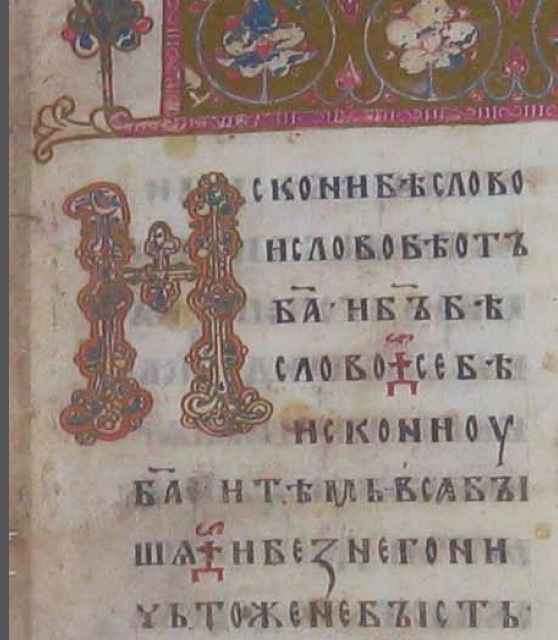 Искони бѣ слово
и слово бѣ отъ
б҃а · и б҃ъ бѣ
слово се бѣ
искони оу
б҃а и тѣмь всꙗ бꙑ
шѧ и без него ни
чьтоже не бꙑсть